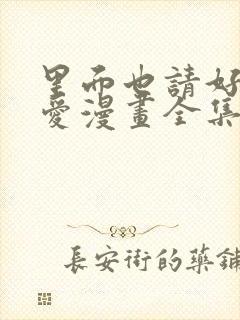 里而也請好
愛漫畫全集
長安街的藥鋪